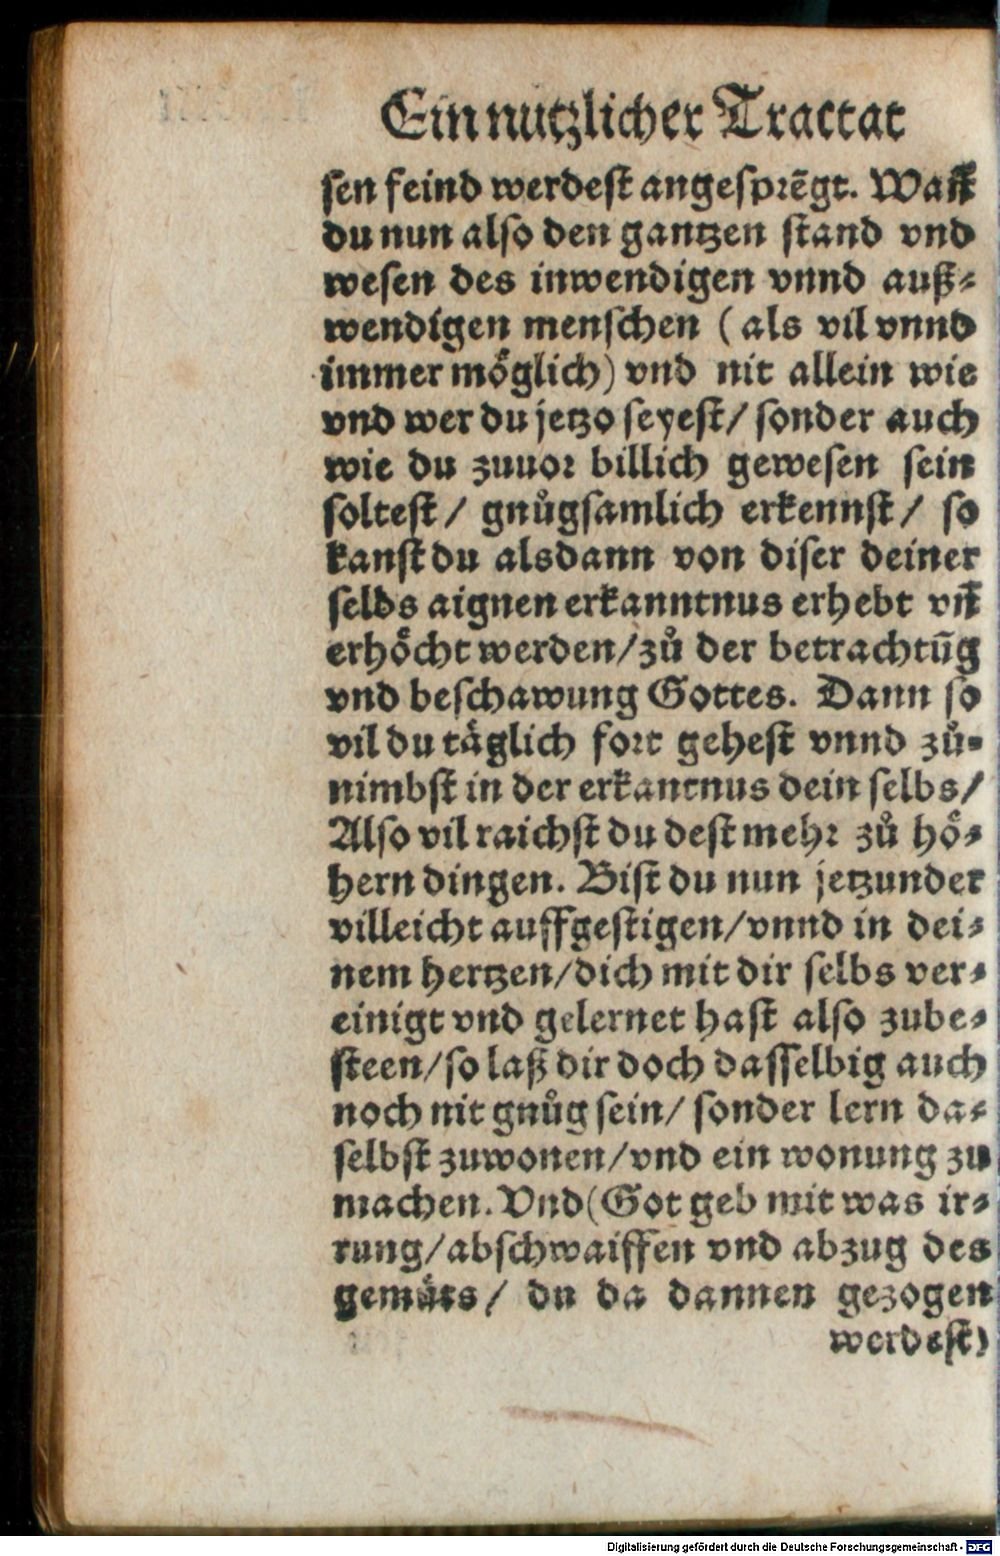 Ein nutzlicher Tractat
sen feind werdest angesprẽgt. Wañ
du nun also den gantzen stand vnd
wesen des inwendigen vnnd auß⸗
wendigen menschen (als vil vnnd
immer moͤglich) vnd nit allein wie
vnd wer du jetzo seyest/ sonder auch
wie du zuuor billich gewesen sein
soltest/ gnůgsamlich erkennst/ so
kanst du alsdann von diser deiner
selbs aignen erkanntnus erhebt vñ
erhoͤcht werden/ zů der betrachtũg
vnd beschawung Gottes. Dann so
vil du taͤglich fort gehest vnnd zů⸗
nimbst in der erkantnus dein selbs/
Also vil raichst du dest mehr zů hoͤ⸗
hern dingen. Bist du nun jetzunder
villeicht auffgestigen/ vnnd in dei⸗
nem hertzen/ dich mit dir selbs ver⸗
einigt vnd gelernet hast also zube⸗
steen/ so laß dir doch dasselbig auch
noch nit gnůg sein/ sonder lern da⸗
selbst zuwonen/ vnd ein wonung zu
machen. Vnd (Got geb mit was ir⸗
rung/ abschwaiffen vnd abzug des
gemuͤts/ du da dannen gezogen
werdest)
Digitalisierung gefördert durch die Deutsche Forschungsgemeinschaft - DFG